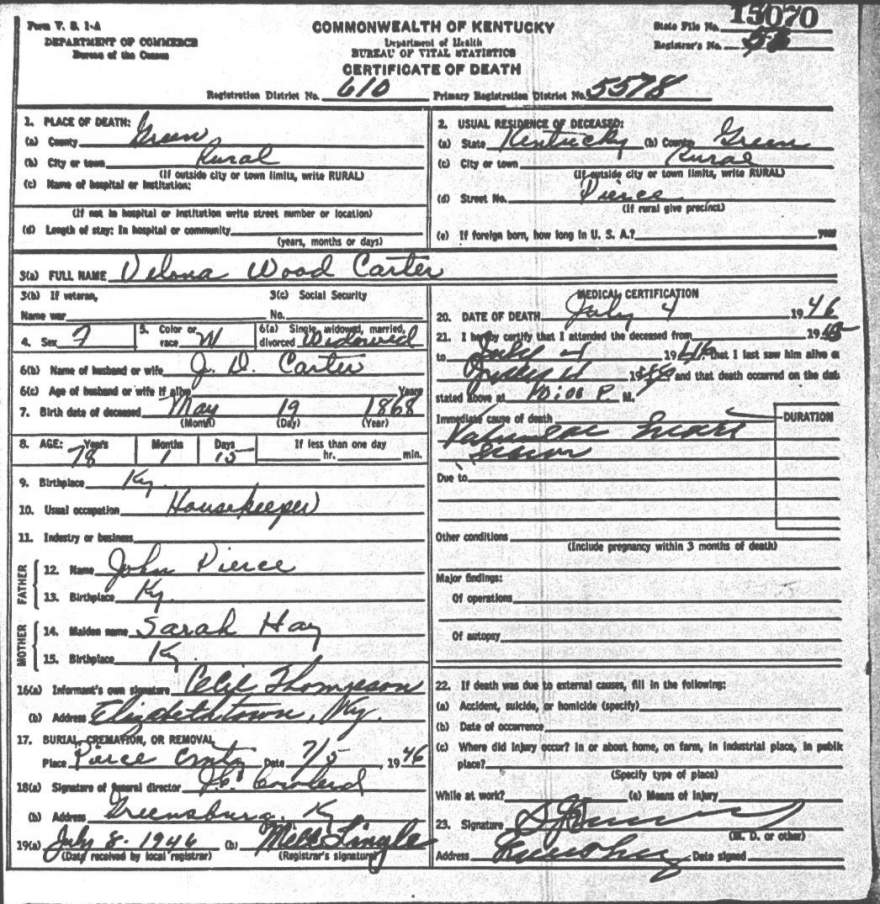 Form V. S. 1-A
DEPARTMENT OF COMMERCE
Bureau of the Census
COMMONWEALTH OF KENTUCKY
Department of Health
BUREAU OF VITAL STATISTICS
CERTIFICATE OF DEATH
State File No. 15070
Registrar's No.
Registration District No. 610 Primary Registration District No. 5578
1. PLACE OF DEATH:
(a) County Green
(b) City or town Rural
(If outside city or town limits, write RURAL)
(c) Name of hospital or institution:
(If not in hospital or institution write street number or location)
(d) Length of stay: In hospital or community
(years, months or days)
2. USUAL RESIDENCE OF DECEASED:
(a) State Kentucky (b) County Green
(c) City or town Rural
(If outside city or town limits, write RURAL)
(d) Street No. Pierce
(If rural give precinct)
(e) If foreign born, how long in U. S. A.? year
3(a) FULL NAME Velona Wood Carter
3(b) If veteran, 3(c) Social Security
Name war No.
4. Sex F 5. Color or race W 6(a) Single, widowed, married, divorced Widowed
6(b) Name of husband or wife J. D. Carter
6(c) Age of husband or wife if alive Years
7. Birth date of deceased May 19 1868
(Month) (Day) (Year)
8. AGE: Years Months Days If less than one day
78 1 15 hr. min.
9. Birthplace Ky.
10. Usual occupation Housekeeper
11. Industry or business
FATHER
12. Name John Pierce
13. Birthplace Ky.
MOTHER
14. Maiden name Sarah Hay
15. Birthplace Ky.
16(a) Informant's own signature Cecil Thompson
(b) Address Elizabethtown, Ky.
17. BURIAL, CREMATION, OR REMOVAL
Place Pierce Cmty Date 7/5 1946
18(a) Signature of funeral director
(b) Address Greensburg, Ky
19(a) July 8. 1946 (b) Lingle
(Date received by local registrar) (Registrar's signature)
MEDICAL CERTIFICATION
20. DATE OF DEATH July 4 1946
21. I hereby certify that I attended the deceased from 1945
to July 4 1946 that I last saw him alive o
July 4 and that death occurred on the dat
stated above at 10:00 P. M.
Immediate cause of death DURATION
Heart
Due to
Other conditions
(Include pregnancy within 3 months of death)
Major findings:
Of operations
Of autopsy
22. If death was due to external causes, fill in the following:
(a) Accident, suicide, or homicide (specify)
(b) Date of occurrence
(c) Where did injury occur? In or about home, on farm, in industrial place, in public
place?
(Specify type of place)
While at work? (e) Means of injury
23. Signature
(M. D. or other)
Address Date signed